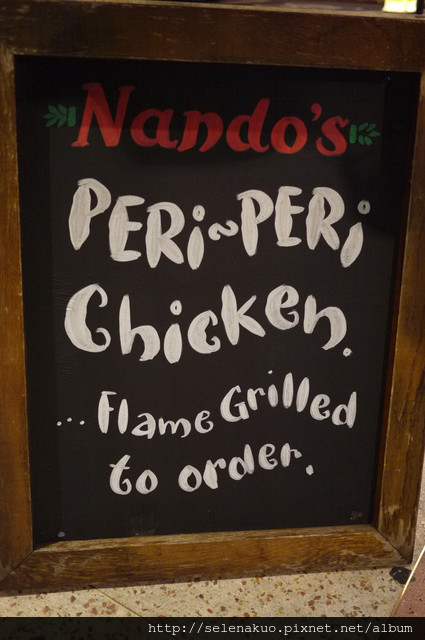 Nando's
PERi~PERi
Chicken.
...Flame Grilled
to order.
http://selenakuo.pixnet.net/album